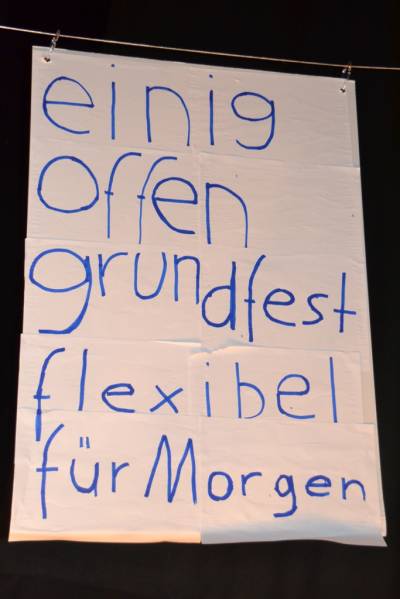 einig
offen
grundfest
flexibel
für Morgen